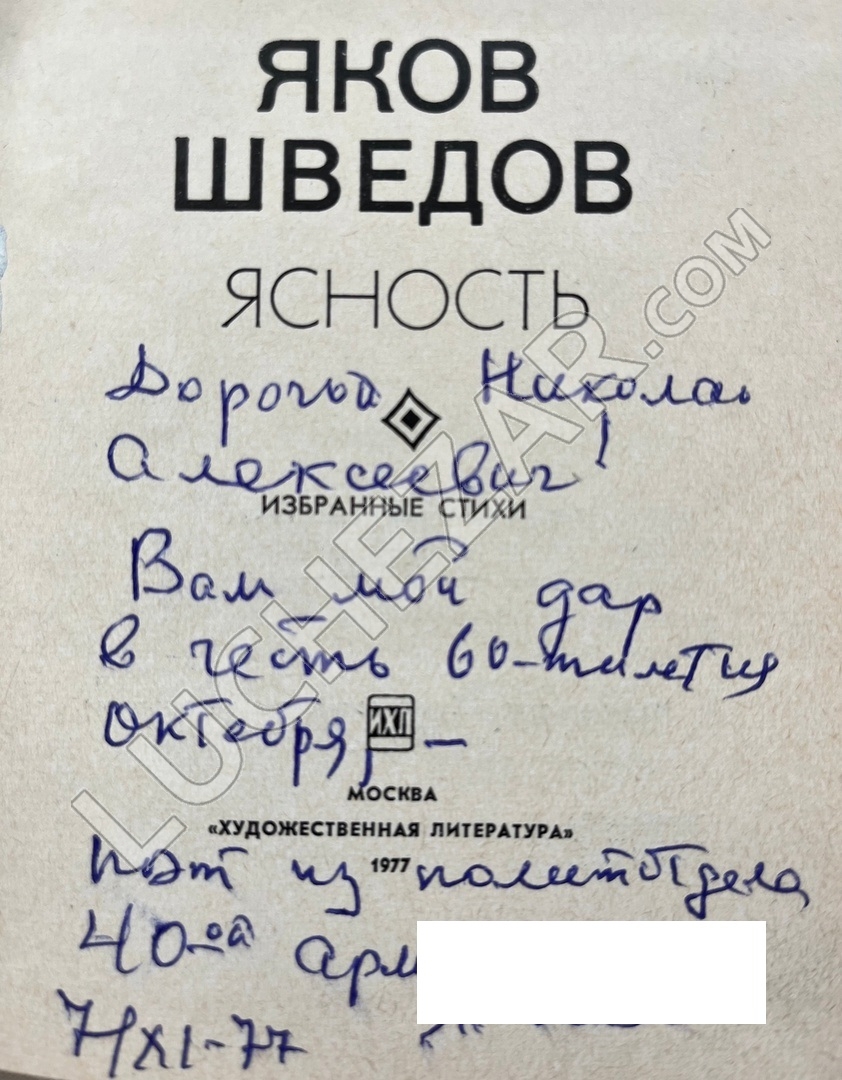 ЯКОВ
ШВЕДОВ
ЯСНОСТЬ
Дорогой Николай
Алексеевич!
ИЗБРАННЫЕ СТИХИ
Вам мой дар
в честь 60-тилетия
Октября, –
ИХЛ
МОСКВА
«ХУДОЖЕСТВЕННАЯ ЛИТЕРАТУРА»
1977
поэт из политотдела
40-ой арм
7/XI-77
LUCHEZAR.COM